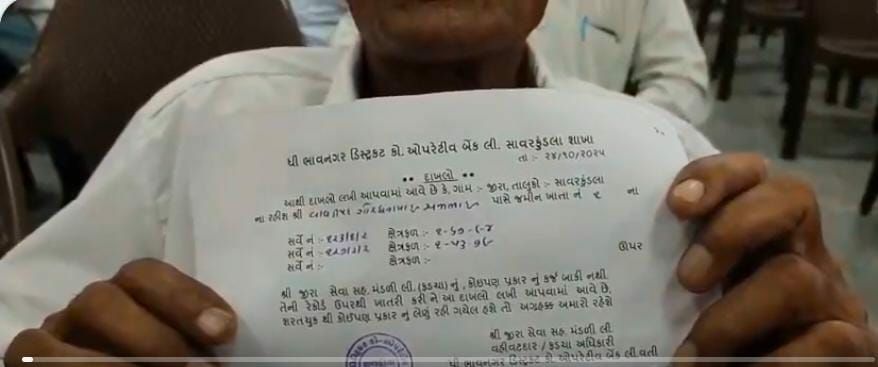 ધી ભાવનગર ડિસ્ટ્રીકટ કો. ઓપરેટીવ બેંક લી. સાવરકુંડલા શાખા
તા :- ૨૪/૧૦/૨૦૨૫
•• દાખલો ••
આથી દાખલો લખી આપવામાં આવે છે કે, ગામ :- જીરા, તાલુકો :- સાવરકુંડલા
ના રહીશ શ્રી પાસે જમીન ખાતા નં ૨ ના
સર્વે નં :- ક્ષેત્રફળ :-
સર્વે નં :- ક્ષેત્રફળ :-
સર્વે નં :- ક્ષેત્રફળ :- ઊપર
શ્રી જીરા સેવા સહ. મંડળી લી. (કડચા) નું , કોઇપણ પ્રકાર નું કર્જ બાકી નથી.
તેની રેકોર્ડ ઉપરથી ખાતરી કરી ને આ દાખલો લખી આપવામાં આવે છે,
શરતચુક થી કોઈપણ પ્રકાર નું લેણું રહી ગયેલ હશે તો અગ્રહક્ક અમારો રહેશે
શ્રી જીરા સેવા સહ. મંડળી લી.
વહીવટદાર / કડચા અધિકારી
ધી ભાવનગર ડિસ્ટ્રકટ કો. ઓપરેટીવ બેંક લી.વતી